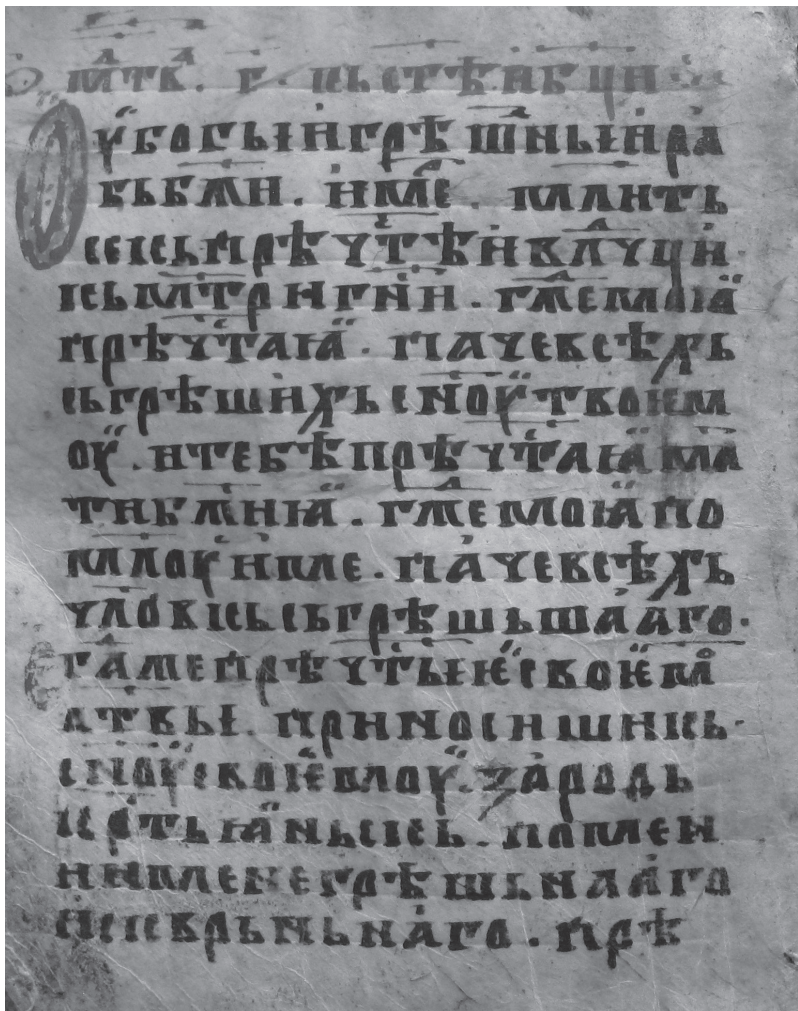 мтв҃. г҃. кь стѣ҃и бц҃и
Оу҆богыи҆ грѣшныи҆ ра
бь бж҃и. и҆ме҃. млить
се кь прѣчтѣ҃и҆ влч҃ци҆
кь мт҃ри гн҃и. гж҃е моꙗ
прѣчт҃аꙗ. паче всѣхь
сьгрѣшихь сн҃оу твоѥм
оу. и тебѣ прѣчт҃аꙗ ма
ти бж҃иꙗ. гж҃е моꙗ по
млоу и ме. паче всѣхь
чло҃вкь сьгрѣшьшааго.
та же прѣчт҃ыѥ своѥ мл
атвы. приносиши кь.
сн҃оу своѥмоу. за родь
крⷭтьꙗньскь. помен
и и мене грѣшьнааго
и скврьньнаго. прѣ